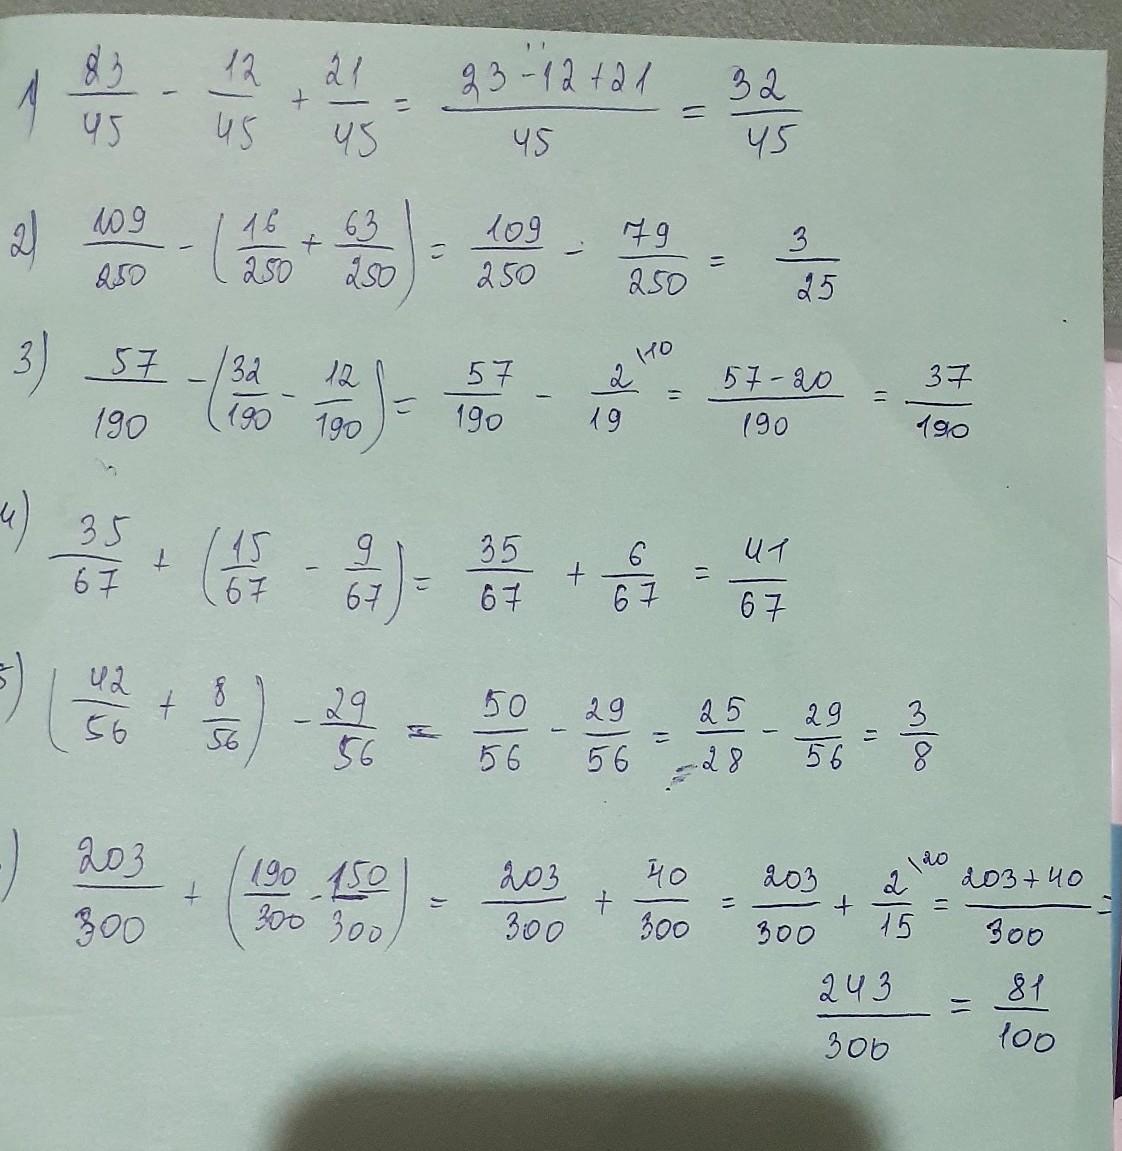 1) 23/45 - 12/45 + 21/45 = (23-12+21)/45 = 32/45
2) 109/250 - (16/250 + 63/250) = 109/250 - 79/250 = 3/25
3) 57/190 - (32/190 - 12/190) = 57/190 - 2/19 \10 = (57-20)/190 = 37/190
4) 35/67 + (15/67 - 9/67) = 35/67 + 6/67 = 41/67
5) (42/56 + 8/56) - 29/56 = 50/56 - 29/56 = 25/28 - 29/56 = 3/8
) 203/300 + (190/300 - 150/300) = 203/300 + 40/300 = 203/300 + 2/15 \20 = (203+40)/300 =
243/300 = 81/100